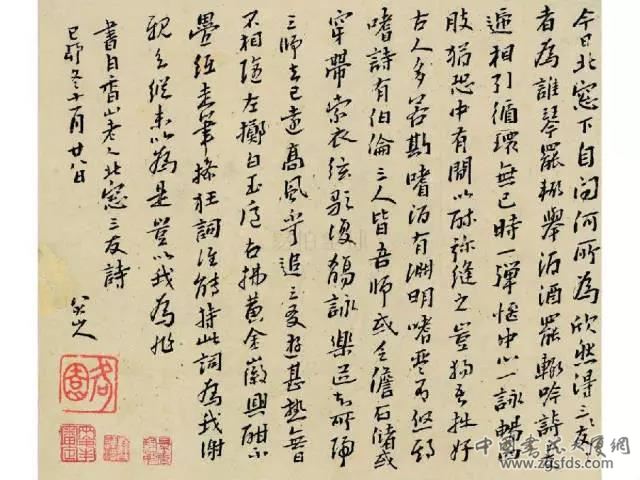 今日北窓下自問何所為欣然淂三友
者為誰琴罷輙舉酒酒罷輙吟詩三友
遞相引循環無已時一彈愜中心一詠暢四
肢猶恐中有間以酣弥縫之豈獨吾拙好
古人多若斯嗜酒有淵明嗜琴有啓期
嗜詩有伯倫三人皆吾師或乏儋石儲或
穿帶索衣弦歌復觴詠樂道知所歸
三師去已遠高風不可追三友遊甚熟無日
不相隨左擲白玉卮右拂黃金徽興酣不
疊紙走筆操狂詞誰能持此詞為我謝
親知縱未以為是豈以我為非
書白香山老人北窓三友詩
己卯冬十一月廿八日
八大山人
中国书法大厦网
www.zgsfds.com